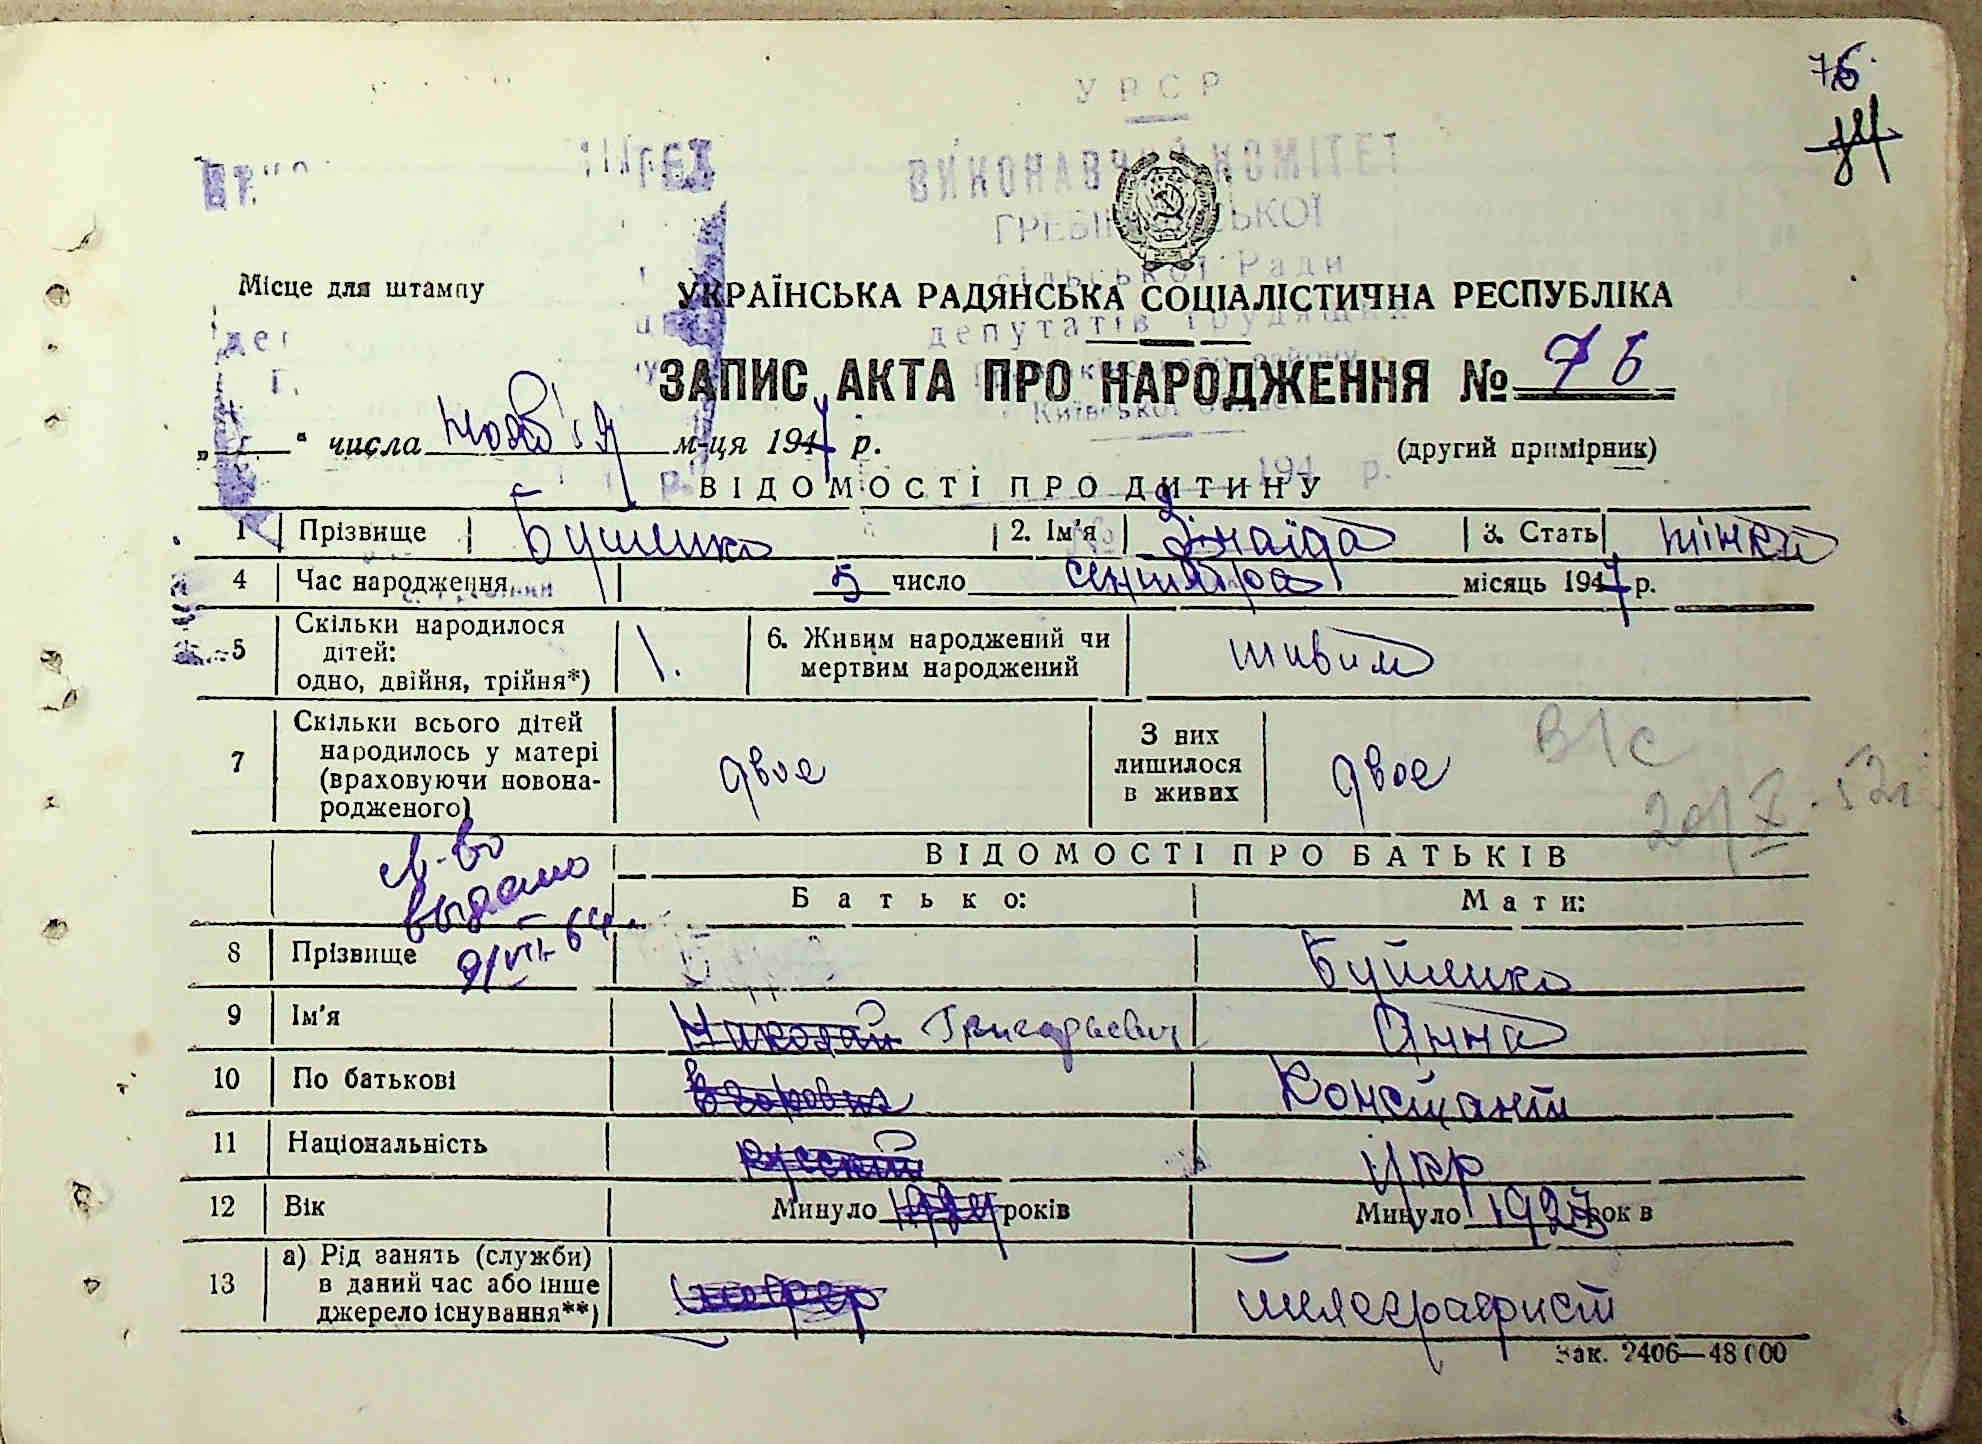 76
УРСР
ВИКОНАВЧИЙ КОМІТЕТ
сільської Ради
депутатів трудящих
Київської області
Місце для штампу
УКРАЇНСЬКА РАДЯНСЬКА СОЦІАЛІСТИЧНА РЕСПУБЛІКА
ЗАПИС АКТА ПРО НАРОДЖЕННЯ № 76
" числа м-ця 1947 р.
(другий примірник)
194 р.
ВІДОМОСТІ ПРО ДИТИНУ
1 Прізвище 2. Ім'я Зінаїда 3. Стать жінка
4 Час народження 5 число сентября місяць 1947 р.
5 Скільки народилося дітей: одно, двійня, трійня*) 1. 6. Живим народжений чи мертвим народжений живим
7 Скільки всього дітей народилось у матері (враховуючи новонародженого) двое З них лишилося в живих двое
в/с
20/X.52
св-во
выдано
9/VII-64
ВІДОМОСТІ ПРО БАТЬКІВ
Батько: Мати:
8 Прізвище
9 Ім'я Николай Григорьевич Анна
10 По батькові Егорович Констант
11 Національність русский укр
12 Вік Минуло 1924 років Минуло 1927 рок в
13 а) Рід занять (служби) в даний час або інше джерело існування**) шофер телеграфист
Зак. 2406—48 000